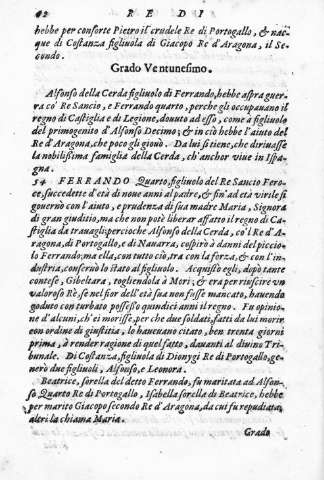 62 R E D I
hebbe per consorte Pietro il crudele Re di Portogallo, & nac-
que di Costanza figliuola di Giacopo Re d'Aragona, il Se-
condo.
Grado Ventunesimo.
Alfonso della Cerda figliuolo di Ferrando, hebbe aspra guer-
ra co' Re Sancio, e Ferrando quarto, perche gli occupauano il
regno di Castiglia e di Legione, douuto ad esso, come a figliuolo
del primogenito d'Alfonso Decimo; & in ciò hebbe l'aiuto del
Re d'Aragona, che poco gli giouò. Da lui si tiene, che diriuasse
la nobilissima famiglia della Cerda, ch'anchor viue in Ispa-
gna.
54 FERRANDO Quarto, figliuolo del Re Sancio Fero-
ce, succedette d'età di noue anni al padre, & fin' ad età virile si
gouernò con l'aiuto, e prudenza di sua madre Maria, Signora
di gran giuditio, ma che non potè liberar affatto il regno di Ca-
stiglia da trauagli: percioche Alfonso della Cerda, co'l Re d'A-
ragona, di Portogallo, e di Nauarra, cospirò à danni del piccio-
lo Ferrando: ma ella, con tutto ciò, tra con la forza, & con l'in-
dustria, conseruò lo stato al figliuolo. Acquistò egli, dopò tante
contese, Gibeltara, togliendola à Mori; & era per riuscire vn
valoroso Rè, se nel fior dell'età sua non fusse mancato, hauendo
goduto con turbato possesso quindici anni il regno. Fu opinio-
ne d'alcuni, ch'ei morisse, per che due soldati, fatti da lui morire
con ordine di giustitia, lo haueuano citato, ben trenta giorni
prima, à render ragione di quel fatto, dauanti al diuino Tri-
bunale. Di Costanza, figliuola di Dionygi Re di Portogallo, ge-
nerò due figliuoli, Alfonso, e Leonora.
Beatrice, sorella del detto Ferrando, fu maritata ad Alfon-
so Quarto Re di Portogallo, Isabella sorella di Beatrice, hebbe
per marito Giacopo secondo Re d'Aragona, da cui fu repudiata,
altri la chiama Maria.
Grado